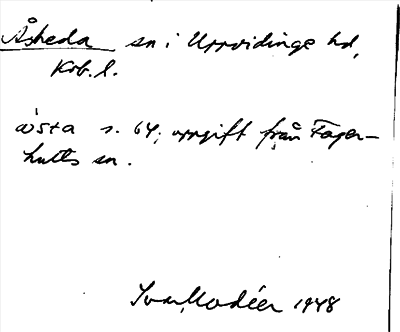 Åsheda sn i Uppvidinge hd,
Krb. l.
avsta s. 64; uppgift från Fager-
hults sn.
Ivar Modéer 1948